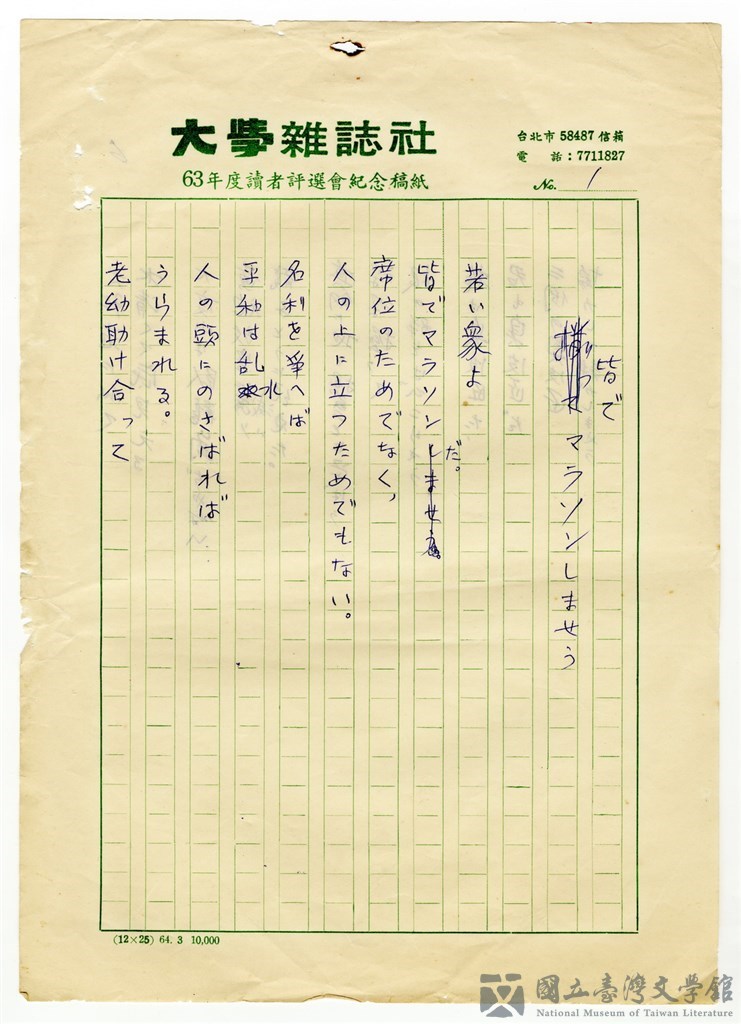 大學雜誌社
63年度讀者評選會紀念稿紙
台北市 58487 信箱
電 話：7711827
No. 1
皆で
揃って マラソンしませう
若い衆よ
皆でマラソンしませう。
だ。
席位のためでなく、
人の上に立つためでもない。
名利を爭へば
平和は乱れ
人の頭にのさばれば
うらまれる。
老幼助け合って
(12×25) 64. 3 10,000
國立臺灣文學館
National Museum of Taiwan Literature